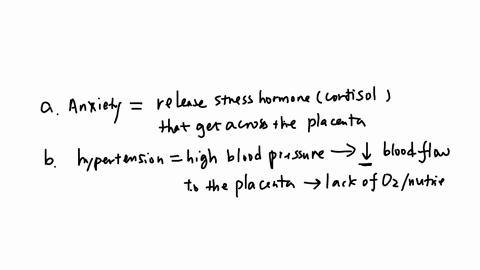 a. Anxiety = release stress hormone (cortisol)
that get across the placenta
b. hypertension = high blood pressure → ↓ blood flow
to the placenta → lack of O2/nutrie